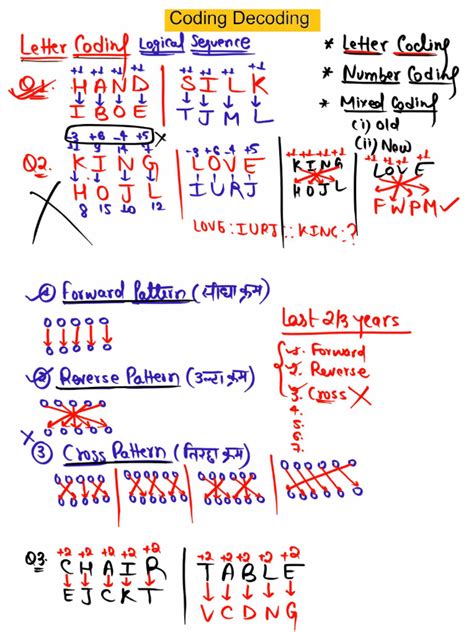 Coding Decoding
Letter Coding Logical Sequence
* Letter Coding
* Number Coding
* Mixed Coding
(i) Old
(ii) New
Q1. +1 +1 +1 +1
H A N D
I B O E
+1 +1 +1 +1
S I L K
T J M L
-3 +6 -4 +5 X
Q2. 11 9 14 7
K I N G
H O J L
8 15 10 12
-3 +6 -4 +5
L O V E
I U R J
+1 +1 +1 +1
K I N G
H O J L
+1 +1 +1 +1
L O V E
F W P M ✓
LOVE : IURJ :: KING : ?
① Forward Pattern (सीधा क्रम)
② Reverse Pattern (उल्टा क्रम)
X ③ Cross Pattern (तिरछा क्रम)
Last-2/3 years
1. Forward
2. Reverse
3. Cross X
4.
5.
6.
7.
Q3. +2 +2 +2 +2 +2
C H A I R
E J C K T
+2 +2 +2 +2 +2
T A B L E
V C D N G